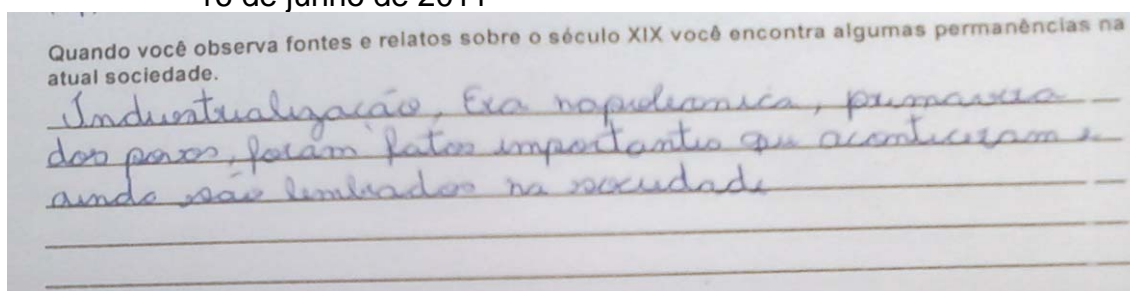 16 de junho de 2011
Quando você observa fontes e relatos sobre o século XIX você encontra algumas permanências na
atual sociedade.
Industrialização, Era napoleonica, primavera
dos povos, foram fatos importantes que aconteceram e
ainda são lembrados na sociedade